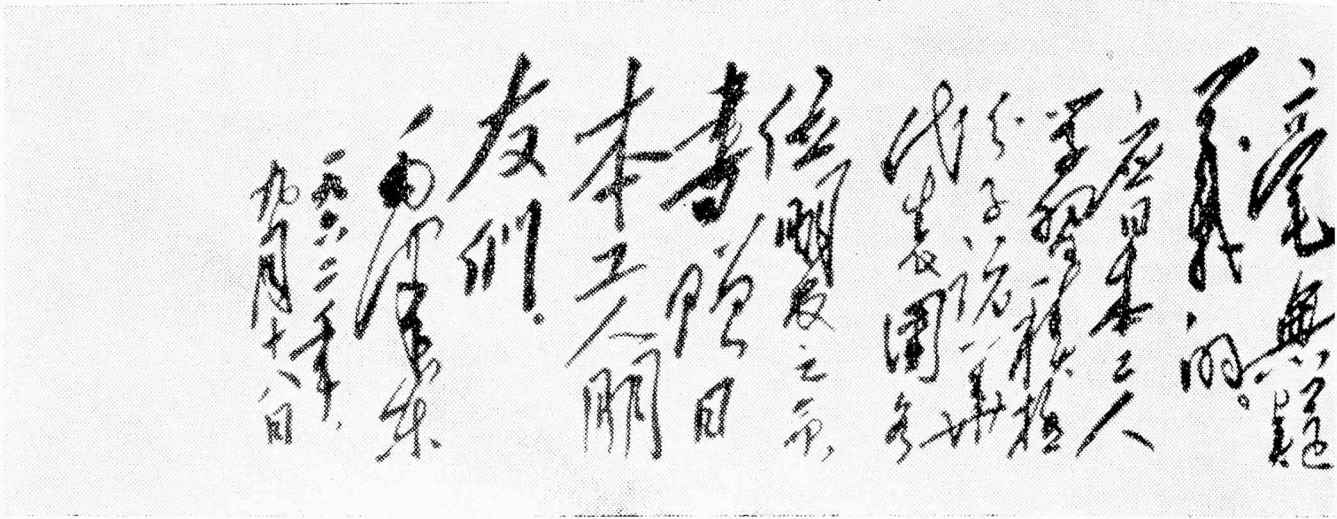 毫無疑
義的。
应日本工人
学習積極
分子訪華
代表團各
位朋友之命,
書贈日
本工人朋
友们。
毛澤東
一九六二年,
九月十八日